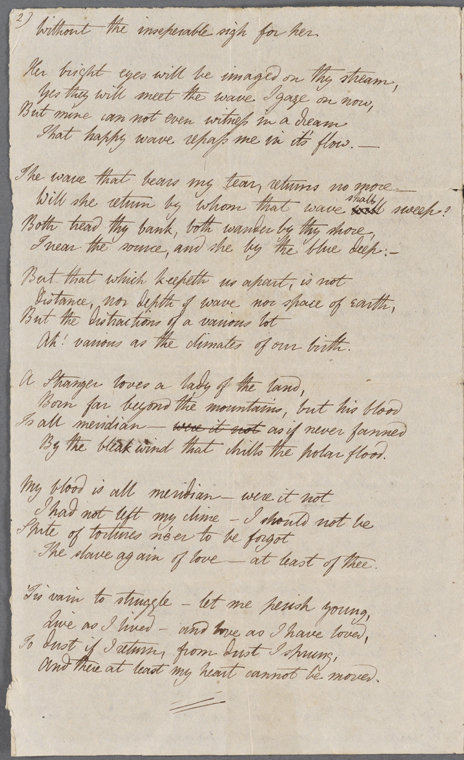 2)
Without the inseperable sigh for her.
Her bright eyes will be imaged on thy stream,
Yes they will meet the wave I gaze on now,
But mine can not even witness in a dream
That happy wave repass me in its' flow. —
The wave that bears my tear, returns no more —
Will she return by whom that wave shall sweep?
Both tread thy bank, both wander by thy shore,
I near the source, and she by the blue deep: —
But that which keepeth us apart, is not
Distance, nor depth of wave nor space of Earth,
But the distractions of a various lot
Ah! various as the climates of our birth.
A Stranger loves a lady of the land,
Born far beyond the mountains, but his blood
Is all meridian — were it not as if never fanned
By the bleak wind that chills the polar flood.
My blood is all meridian — were it not
I had not left my clime — I should not be
Spite of tortures ne'er to be forgot
The slave again of love — at least of thee.
Tis vain to struggle — let me perish young,
Live as I lived — and love as I have loved,
To dust if I return, from dust I sprung,
And there at least my heart cannot be moved.